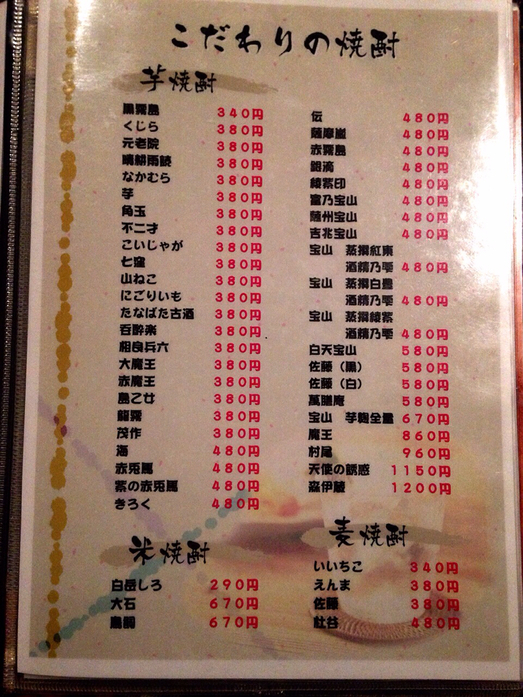 こだわりの焼酎
芋焼酎
黒霧島 340円
くじら 380円
元老院 380円
晴耕雨読 380円
なかむら 380円
芋 380円
角玉 380円
不二才 380円
こいじゃが 380円
七窪 380円
山ねこ 380円
にごりいも 380円
たなばた古酒 380円
呑酔楽 380円
相良兵六 380円
大魔王 380円
赤魔王 380円
島乙女 380円
龍霧 380円
茂作 380円
海 480円
赤兎馬 480円
紫の赤兎馬 480円
きろく 480円
伝 480円
薩摩嵐 480円
赤霧島 480円
銀滴 480円
綾紫印 480円
富乃宝山 480円
薩州宝山 480円
吉兆宝山 480円
宝山 蒸撰紅東
酒精乃雫 480円
宝山 蒸撰白豊
酒精乃雫 480円
宝山 蒸撰綾紫
酒精乃雫 480円
白天宝山 580円
佐藤（黒） 580円
佐藤（白） 580円
萬膳庵 580円
宝山 芋麹全量 670円
魔王 860円
村尾 960円
天使の誘惑 1150円
森伊蔵 1200円
米焼酎
白岳しろ 290円
大石 670円
鳥飼 670円
麦焼酎
いいちこ 340円
えんま 380円
佐藤 380円
杜谷 480円